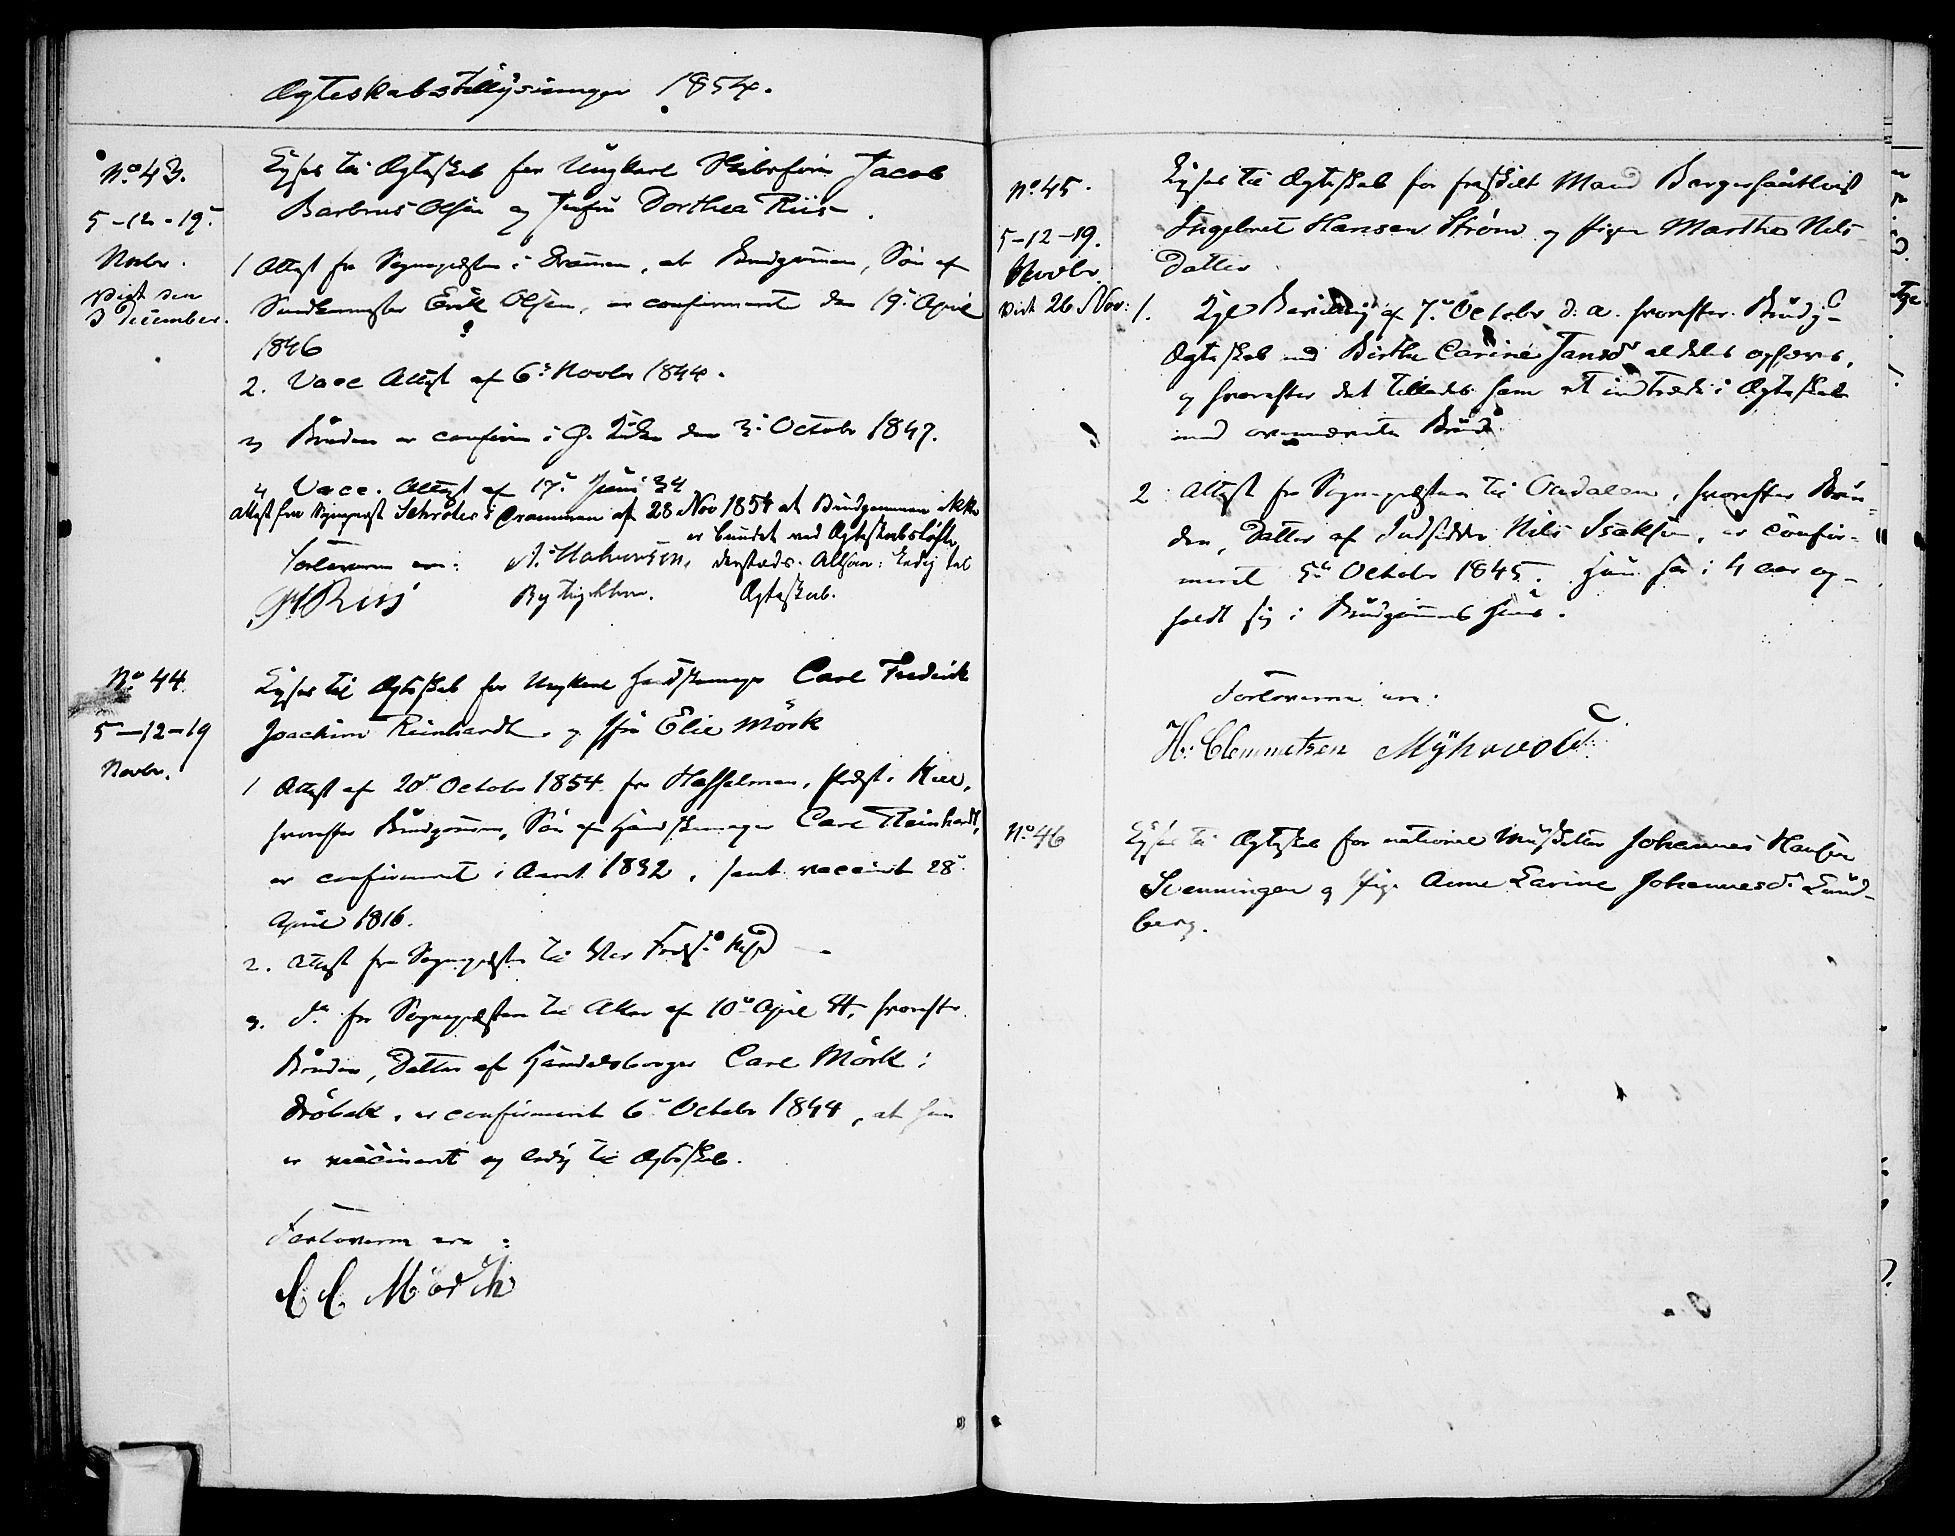 Ægteskabstillysninger 1854.
No 43.
5-12-19.
Novbr.
Viet den
3 December.
Lyses til Ægteskab for Ungkarl Skibsfører Jacob
Barbrus Olsen og Jomfru Dorthea Riis.
1 Attest fra Sognepræsten i Drammen, at Brudgommen, Søn af
Erik Olsen, er confirmeret den 19. April
1846
2. Vacc. Attest af 6. Novbr 1844.
3 Bruden er confirm. i Kirke den 3. Octobr 1847.
4 Vacc. Attest af 17. Juni 34
Attest fra Sognepræst Schröter i Drammen af 28 Nov 1854 at Brudgommen ikke
er bundet ved Ægteskabsløfte
dersteds. Altsaa: Ledig til
Ægteskab.
Forloverne ere:
Riis
No 44.
5-12-19
Novbr.
Lyses til Ægteskab for Ungkarl Handskemager Carl Frederik
Joachim Reinhardt og Jfr Elie Mörk
1 Attest af 20. Octobr 1854 fra Hasselman, Præst i Kiel,
hvorefter Brudgommen, Søn af Handskemager Carl Reinhardt,
er confirmeret i Aaret 1832, samt vaccineret 28.
April 1816.
2. Attest fra Sognepræsten til
3. do fra Sognepræsten til Aker af 10. April 44, hvorefter
Bruden, Datter af Handelsborger Carl Mörk i
Dröbak, er confirmeret 6. Octobr 1844, at hun
er vaccineret og ledig til Ægteskab.
Forloverne ere:
C C Mörch
No 45.
5-12-19.
Novbr.
Viet 26 Nov:
Lyses til Ægteskab for fraskilt Mand
Ingebret Hansen Strøm og Pigen Marthe Nils
Datter
1. Kgl Bevilling af 7. Octobr d. a. hvorefter Brudg.
Ægteskab med Birthe Carine Jansdr aldeles ophæves,
og hvorefter det tillades ham at indtræde i Ægteskab
med ovennævnte Brud.
2 Attest fra Sognepræsten til Aadalen, hvorefter Bru-
den, Datter af Indsidder Nils Isaksen, er confir-
meret 5. Octobr 1845. Hun har i 4 Aar op-
holdt sig i Brudgommens Huus.
Forloverne ere:
H. Clemmetsen Myhrvold
No 46
Lyses til Ægteskab for national Musketer Johannes Hansen
Svenningen og Pige Anne Larine Johannesdr Lund-
berg.